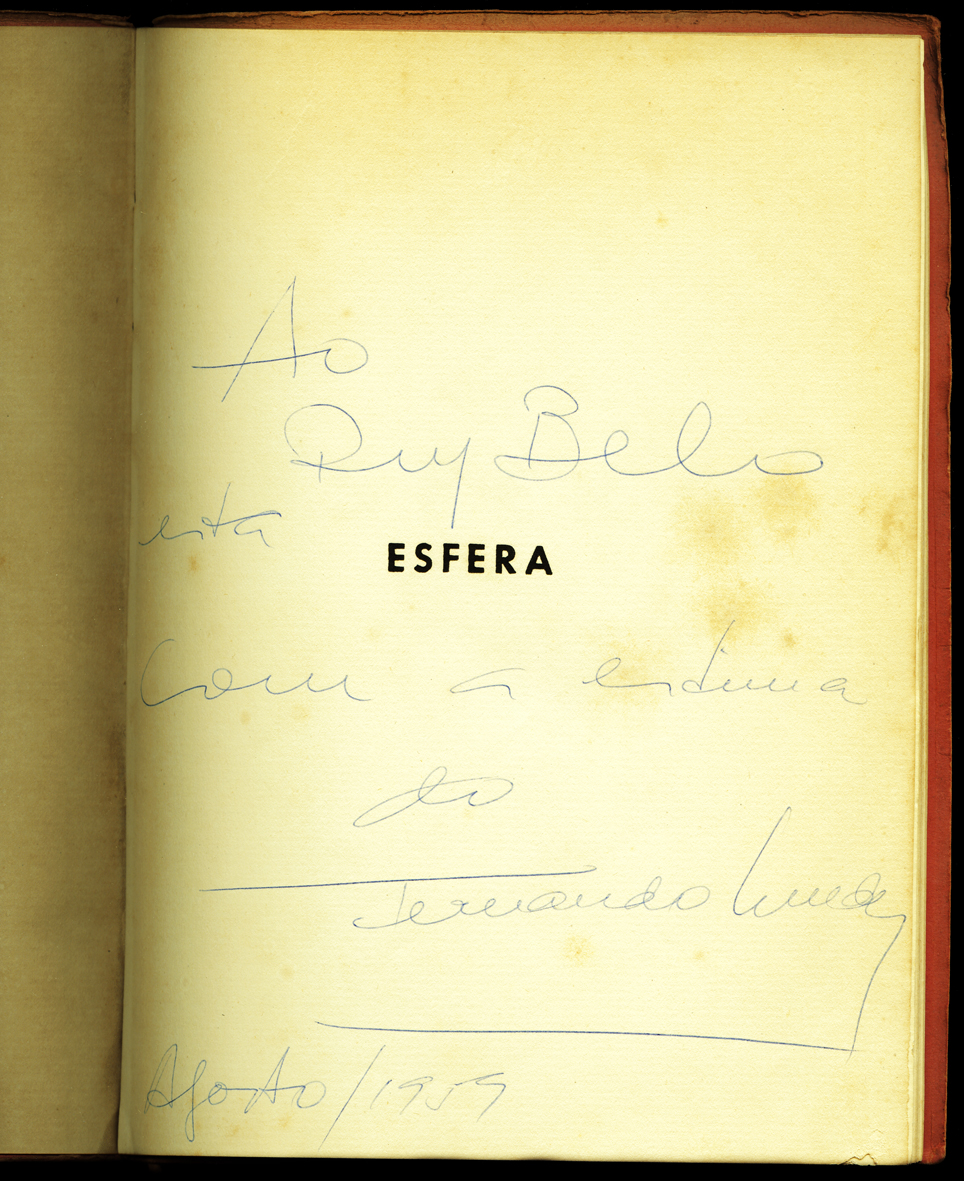 Ao
Ruy Belo
esta
ESFERA
com a estima
do
Fernando
Agosto/1959